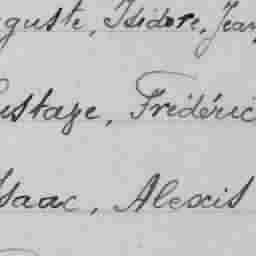 guste, Isidore, Jean
ustaze, Frédéric
saac, Alexis